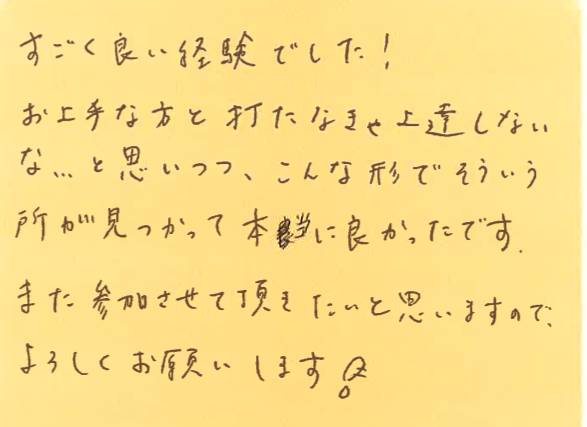 すごく良い経験でした!
お上手な方と打たなきゃ上達しない
な…と思いつつ、こんな形でそういう
所が見つかって本当に良かったです.
また参加させて頂きたいと思いますので、
よろしくお願いします